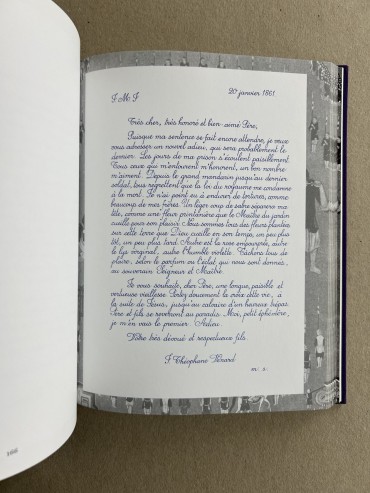 J M J 20 janvier 1861.
Très cher, très honoré et bien-aimé Père,
Puisque ma sentence se fait encore attendre, je veux
vous adresser un nouvel adieu, qui sera probablement le
dernier. Les jours de ma prison s'écoulent paisiblement.
Tous ceux qui m'entourent m'honorent, un bon nombre
m'aiment. Depuis le grand mandarin jusqu'au dernier
soldat, tous regrettent que la loi du royaume me condamne
à la mort. Je n'ai point eu à endurer de tortures, comme
beaucoup de mes frères. Un léger coup de sabre séparera ma
tête, comme une fleur printanière que le Maître du jardin
cueille pour son plaisir. Nous sommes tous des fleurs plantées
sur cette terre que Dieu cueille en son temps, un peu plus
tôt, un peu plus tard. Autre est la rose empourprée, autre
le lys virginal, autre l'humble violette. Tâchons tous de
plaire, selon le parfum ou l'éclat qui nous sont donnés,
au souverain Seigneur et Maître.
Je vous souhaite, cher Père, une longue, paisible et
vertueuse vieillesse. Portez doucement la croix de cette vie, à
la suite de Jésus, jusqu'au calvaire d'un heureux trépas.
Père et fils se reverront au paradis. Moi, petit éphémère,
je m'en vais le premier. Adieu.
Votre très dévoué et respectueux fils.
J Théophane Vénard
m. s.